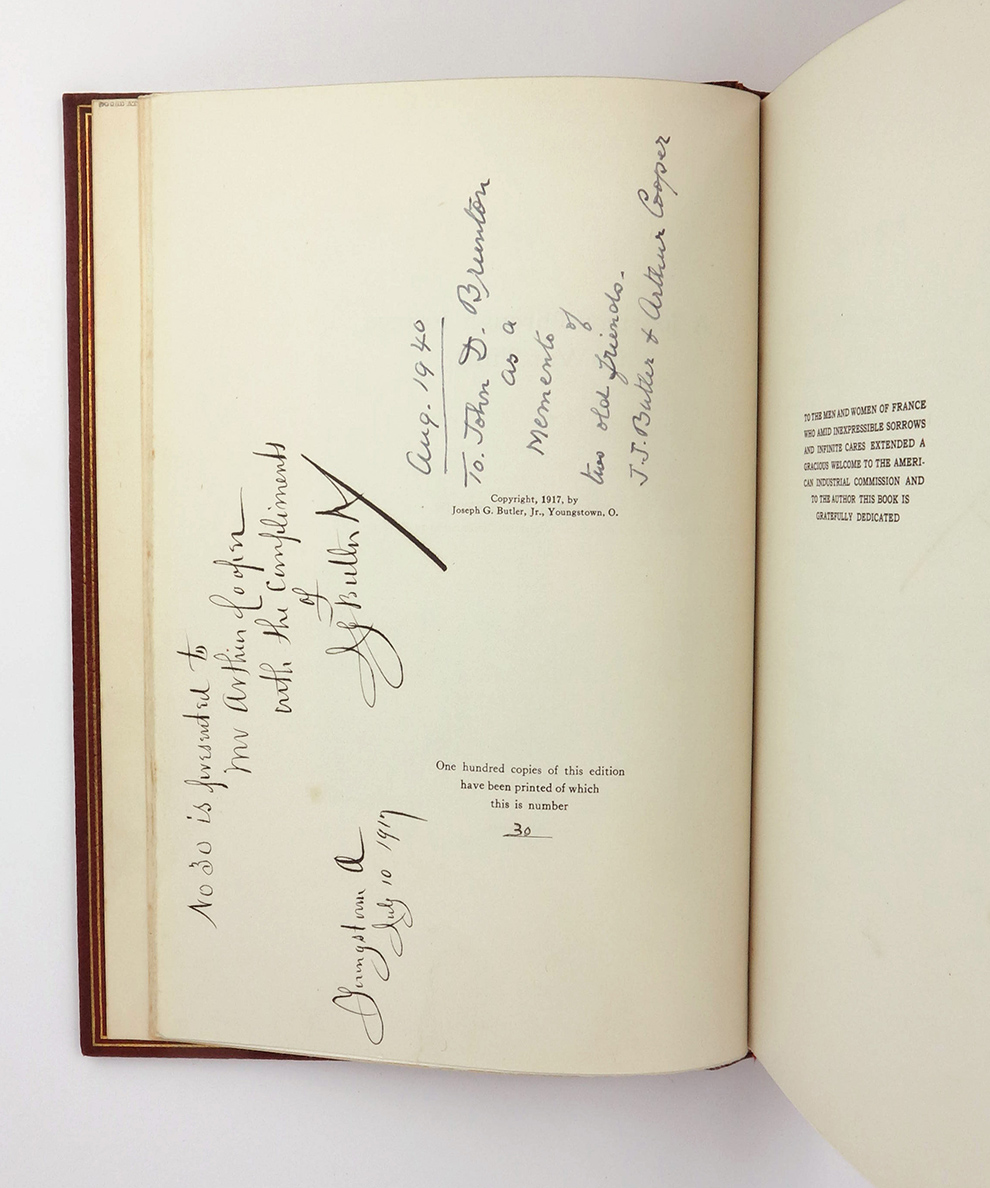 No 30 is presented to
Mr Arthur Cooper
with the Compliments
of
J G Butler Jr
Youngstown O
July 10 1917
Aug. 1940
To. John D. Brunton
as a
Memento
of
two old friends.
J J. Butler & Arthur Cooper
Copyright, 1917, by
Joseph G. Butler, Jr., Youngstown, O.
One hundred copies of this edition
have been printed of which
this is number
30
TO THE MEN AND WOMEN OF FRANCE
WHO AMID INEXPRESSIBLE SORROWS
AND INFINITE CARES EXTENDED A
GRACIOUS WELCOME TO THE AMERI-
CAN INDUSTRIAL COMMISSION AND
TO THE AUTHOR THIS BOOK IS
GRATEFULLY DEDICATED